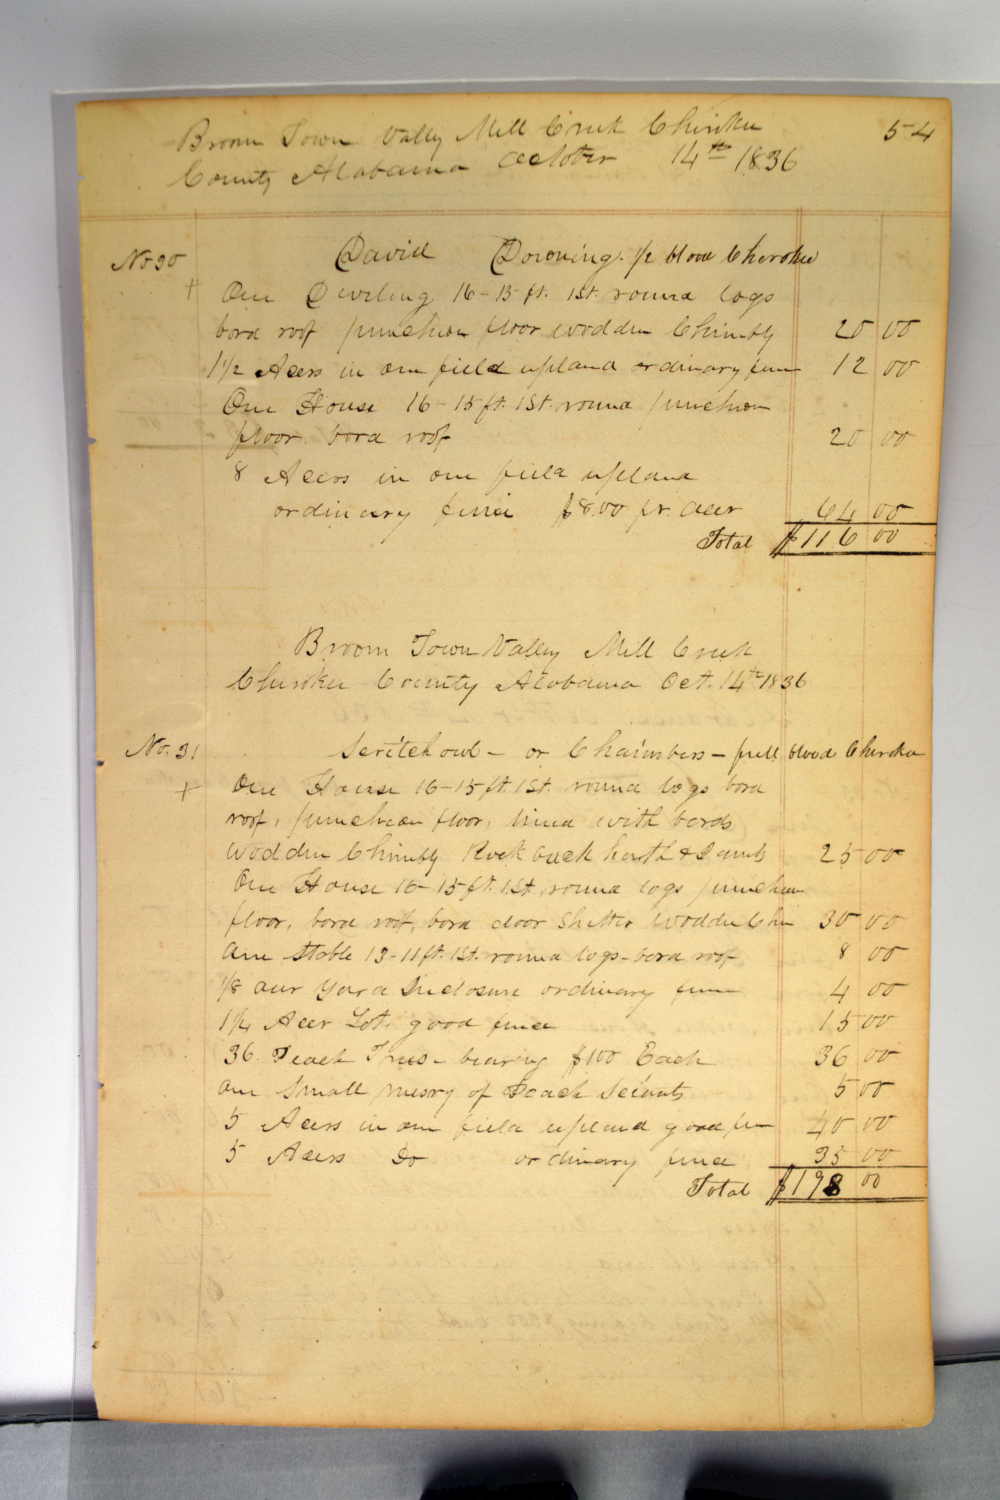 54
Broom Town Vally Mill Creek Cheroke
County Alabama October 14th 1836
No 30 David Downing 1/2 blood Cherokee
+ One Dweling 16-15 ft. 1St. round logs
bord roof puncheon floor wodden Chimbly 20 00
1 1/2 Acers in one field upland ordinary fence 12 00
One House 16-15 ft. 1St. round puncheon
floor bord roof 20 00
8 Acers in one field upland
ordinary fence $8.00 pr. acer 64 00
Total $116 00
Broom Town Valley Mill Creek
Cherokee County Alabama Oct. 14th 1836
No. 31 Scritchowl - or Chambers - full blood Cherokee
+ One House 16-15 ft. 1St. round logs bord
roof, puncheon floor, lined with bords
wodden Chimbly Rock back harth & Jambs 25 00
One House 16-15 ft. 1St. round logs puncheon
floor, bord roof, bord door Shetter wodden Chim 30 00
One Stable 13-11 ft. 1St. round logs-bord roof 8 00
1/8 acer yard Inclosure ordinary fence 4 00
1 1/4 Acer Lot. good fence 15 00
36 Peach Trees - bearing $100 Each 36 00
One Small nursry of Peach Scients 5 00
5 Acers in one field upland good fen 40 00
5 Acers Do ordinary fence 35 00
Total $198 00